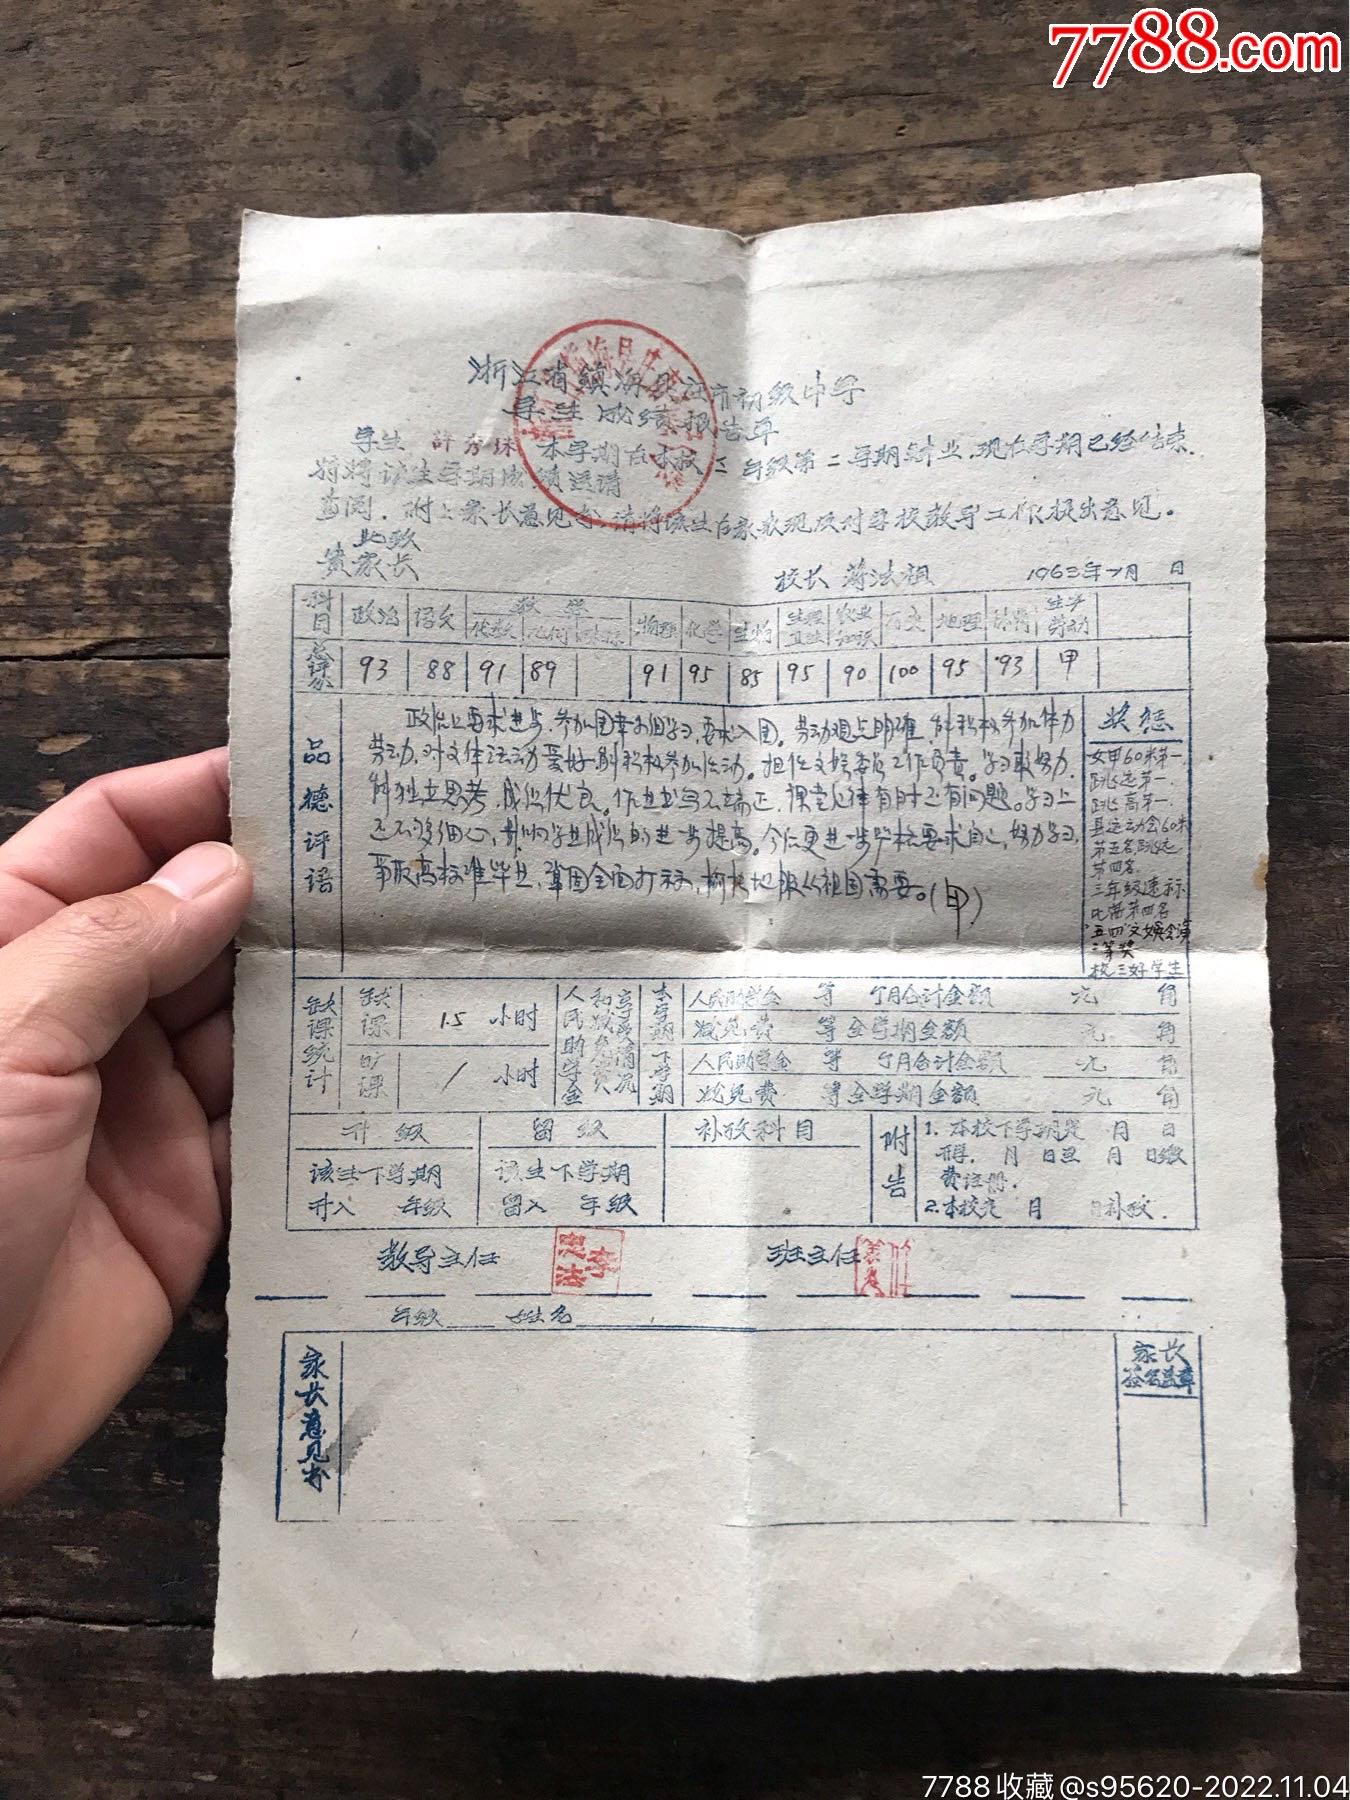 7788.com
浙江省镇海县庄市初级中学
学生成绩报告单
学生 許秀珠 本学期在本校三年级第二学期肄业,现在学期已经结束,
特将该生学期成绩送请
查阅,附上家长意见书,请将该生在家表现及对学校教导工作提出意见。
此致
贵家长
校长 蒋法祖 1963年7月 日
科目 政治 语文 数学 代数 几何 物理 化学 生物 生理卫生 农业知识 历史 地理 体育 生产劳动
总评分 93 88 91 89 91 95 85 95 90 100 95 93 甲
品德评语
政治上要求进步,参加团章学习,要求入团。劳动观点明确,能积极参加体力
劳动,对文体活动爱好,能积极参加活动。担任文娱委员工作负责。学习较努力,
能独立思考,成绩优良。作业书写不端正,课堂纪律有时还有问题。学习上
还不够细心,影响学业成绩的进一步提高。今后更进一步严格要求自己,努力学习,
争取高标准毕业,巩固全面打算,愉快地服从祖国需要。(甲)
奖惩
女甲60米第一,
跳远第一,
跳高第一,
县运动会60米
第五名跳远
第四名
三年级速标
比赛第四名
"五四"文娱会演
三等奖
校三好学生
缺课统计
缺课 1.5 小时
旷课 / 小时
人民助学金和减免费享受情况
本学期 人民助学金 等 个月合计金额 元 角
减免费 等全学期金额 元 角
下学期 人民助学金 等 个月合计金额 元 角
减免费 等全学期金额 元 角
升级 留级 补考科目
该生下学期
升入 年级
该生下学期
留入 年级
附告
1.本校下学期定 月 日
开学, 月 日至 月 日缴
费注册.
2.本校定 月 日补考.
教导主任 班主任
年级 姓名
家长意见书
家长
签名盖章
7788收藏@s95620-2022.11.04